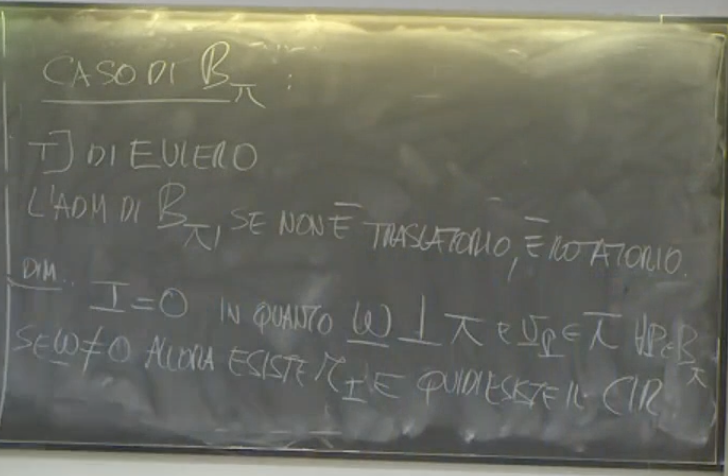 CASO DI B_π :
T] DI EULERO
L'ADM DI B_π, SE NON È TRASLATORIO, È ROTATORIO.
DIM.
I = 0 IN QUANTO ω ⊥ π E v_P ∈ π ∀P∈B_π
SE ω ≠ 0 ALLORA ESISTE r_I E QUINDI ESISTE IL CIR